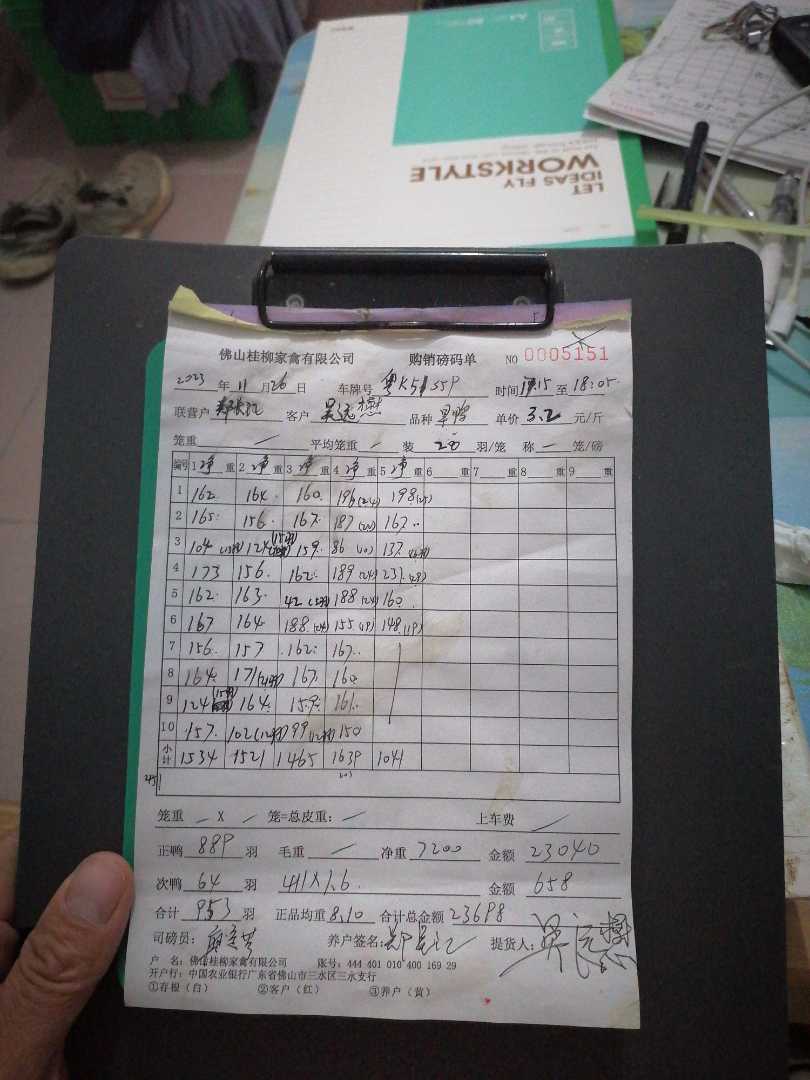 LET
IDEAS FLY
WORKSTYLE
佛山桂柳家禽有限公司 购销磅码单 NO 0005151
2023 年 11 月 26 日 车牌号 粤K51S5P 时间 17:15 至 18:05
联营户 客户 吴远懋 品种 单价 3.2 元/斤
笼重 — 平均笼重 — 装 20 羽/笼 称 — 笼/磅
编号 1 净 重 2 净 重 3 净 重 4 净 重 5 净 重 6 重 7 重 8 重 9 重
1 162 164 160 196 (24) 198 (25)
2 165 156 167 187 163
3 104 124 (15羽) 159 86 (10) 137
4 173 156 162 189 (24) 231 (29)
5 162 163 42 188 (24) 160
6 167 164 188 (24) 155 (19) 148 (19)
7 156 157 162 167
8 164 171 167 160
9 124 (15羽) 164 159 161
10 157 102 (12羽) 99 (12羽) 150
小计 1534 1521 1465 1639 1041
笼重 — X — 笼=总皮重: — 上车费 —
正鸭 889 羽 毛重 — 净重 7200 金额 23040
次鸭 64 羽 411X1.6 金额 658
合计 953 羽 正品均重 8.10 合计总金额 23698
司磅员: 养户签名: 提货人: 吴远懋
户 名: 佛山桂柳家禽有限公司 账号: 444 401 010 400 169 29
开户行: 中国农业银行广东省佛山市三水区三水支行
①存根(白) ②客户(红) ③养户(黄)